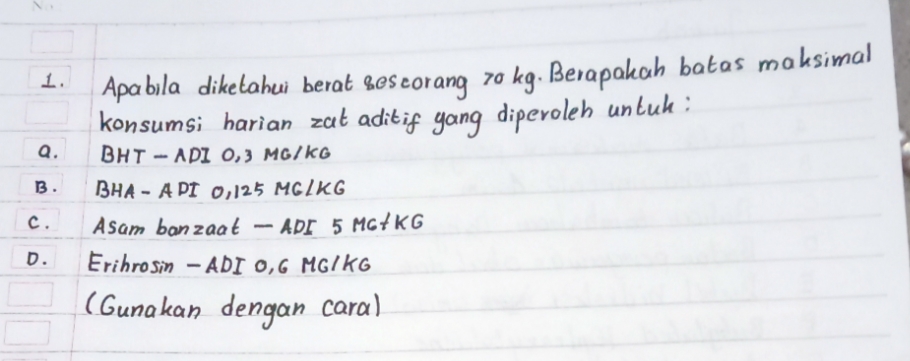 No.
1. Apabila diketahui berat seseorang 70 kg. Berapakah batas maksimal
konsumsi harian zat aditif yang diperoleh untuk :
a. BHT - ADI 0,3 MG/KG
B. BHA - ADI 0,125 MG/KG
C. Asam banzaat - ADI 5 MG/KG
D. Erihrosin - ADI 0,6 MG/KG
(Gunakan dengan cara)